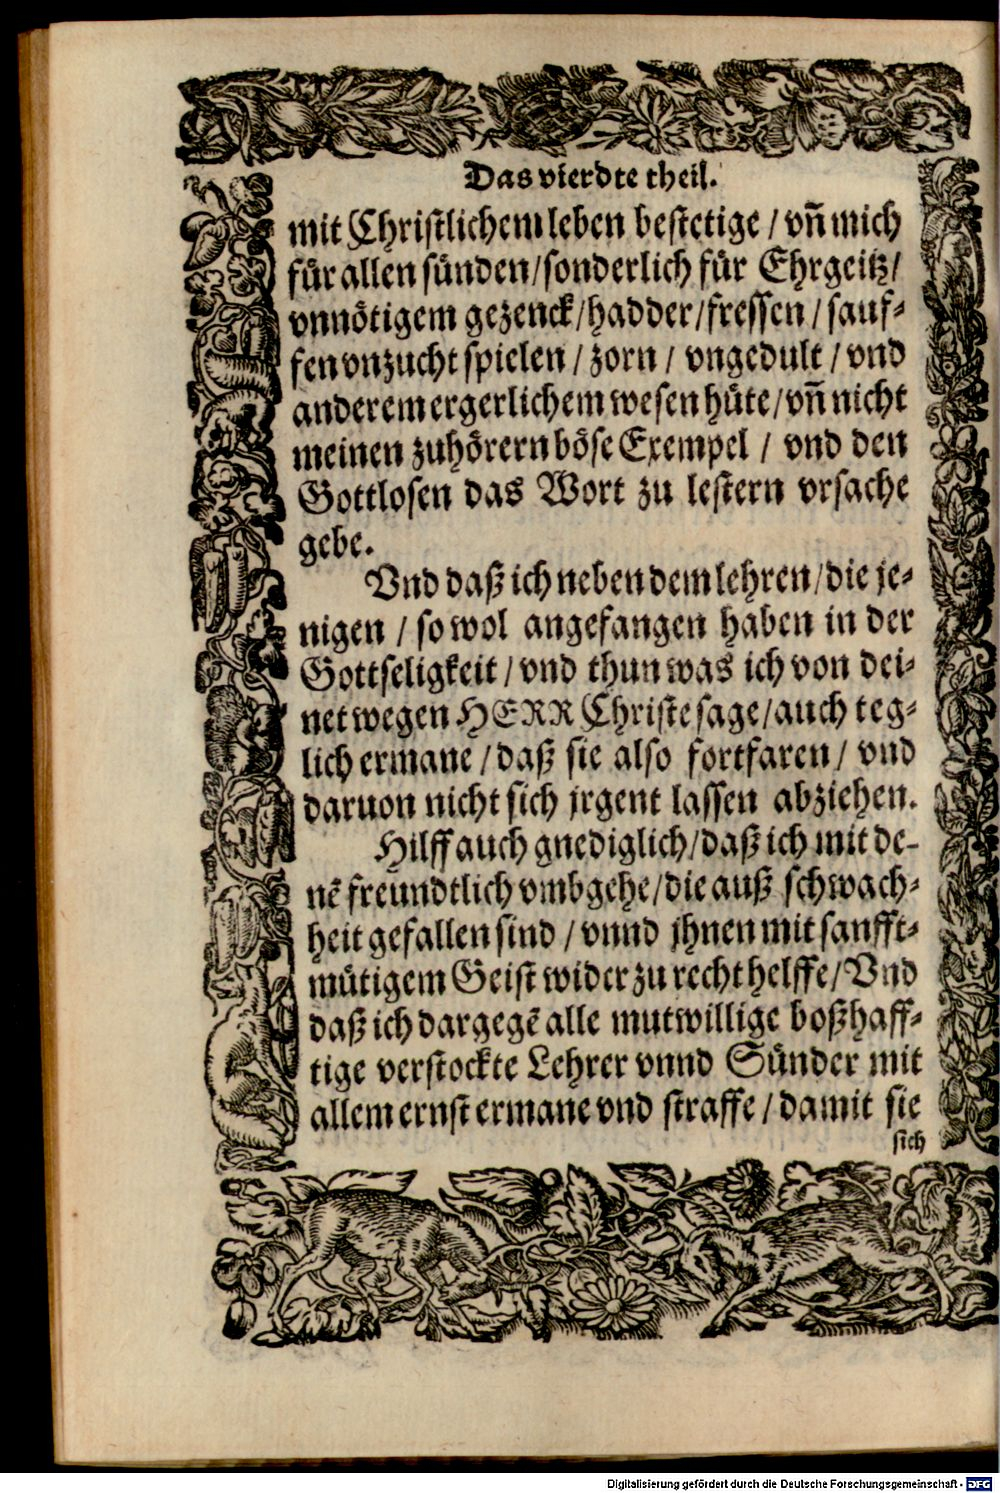 Das vierdte theil.
mit Christlichem leben bestetige / vñ mich
für allen sünden/sonderlich für Ehrgeitz/
vnnötigem gezenck/hadder/fressen / sauf-
fen vnzucht spielen / zorn / vngedult / vnd
anderem ergerlichem wesen hüte/vñ nicht
meinen zuhörern böse Exempel / vnd den
Gottlosen das Wort zu lestern vrsache
gebe.
Vnd daß ich neben dem lehren/die je-
nigen / so wol angefangen haben in der
Gottseligkeit / vnd thun was ich von dei-
net wegen HERR Christe sage/auch teg-
lich ermane / daß sie also fortfaren / vnd
daruon nicht sich jrgent lassen abziehen.
Hilff auch gnediglich/daß ich mit de-
nē freundtlich vmbgehe/die auß schwach-
heit gefallen sind / vnnd jhnen mit sanfft-
mütigem Geist wider zu recht helffe/Vnd
daß ich dargegē alle mutwillige boßhaff-
tige verstockte Lehrer vnnd Sünder mit
allem ernst ermane vnd straffe / damit sie
sich
Digitalisierung gefördert durch die Deutsche Forschungsgemeinschaft - DFG